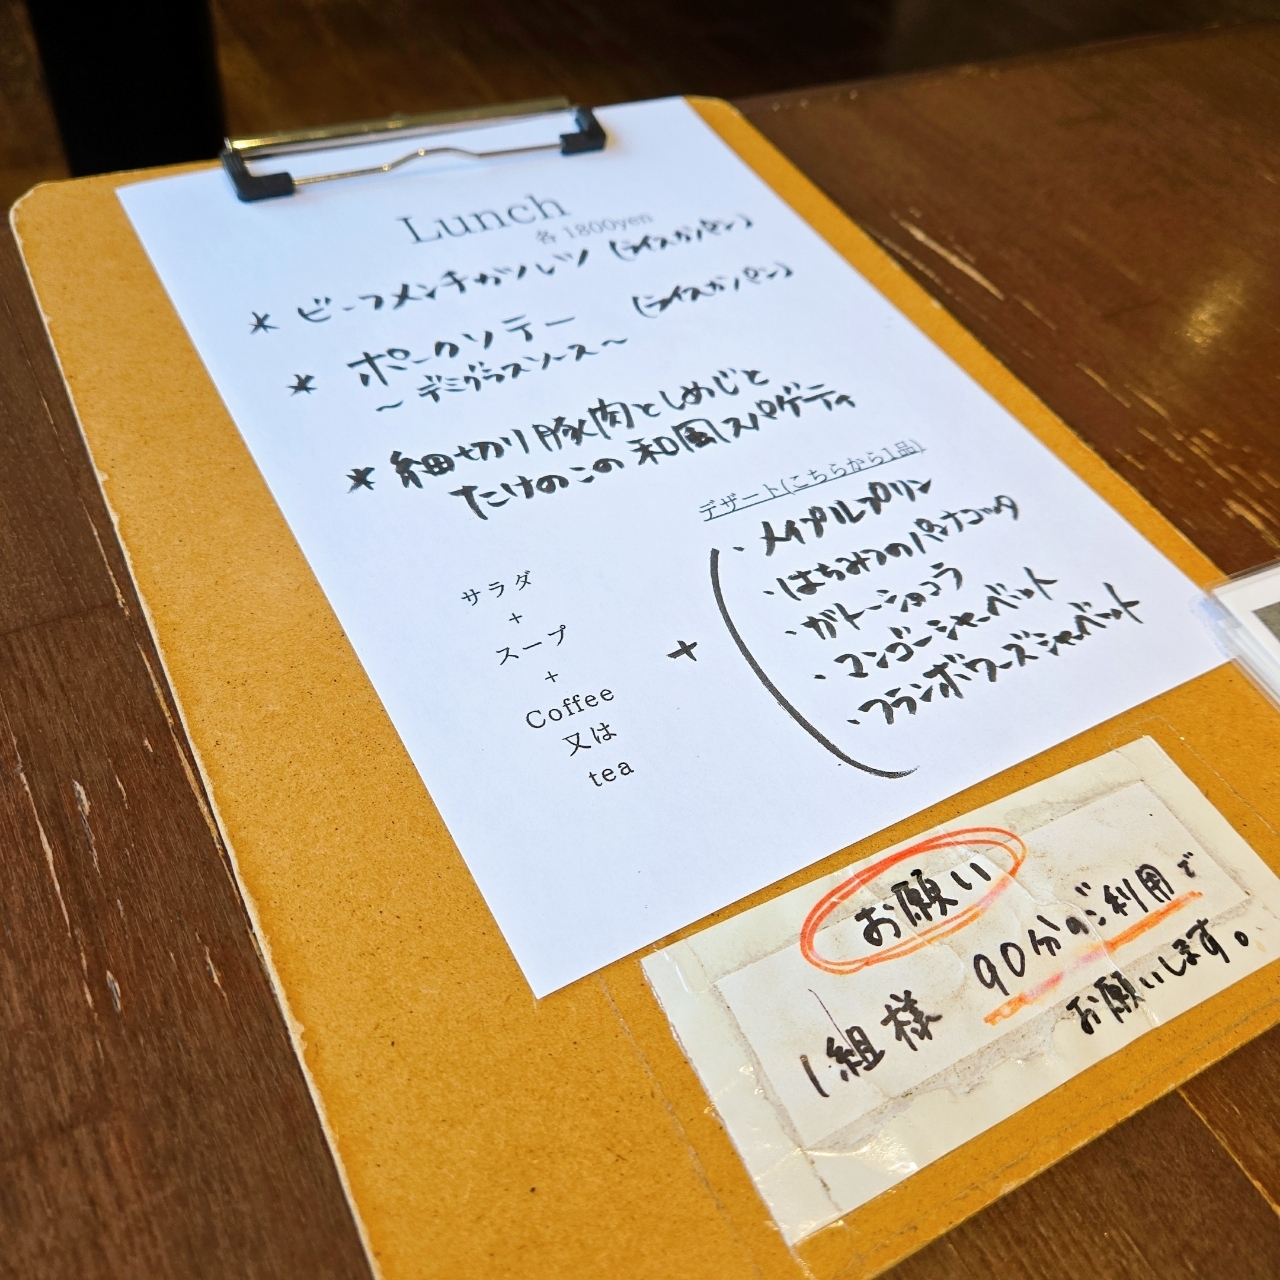 Lunch
各 1800yen
* ビーフメンチカツレツ (ライスかパン)
* ポークソテー (ライスかパン)
〜デミグラスソース〜
* 細切り豚肉としめじと
たけのこの和風スパゲティ
デザート(こちらから1品)
・メイプルプリン
・はちみつのパンナコッタ
・ガトーショコラ
・マンゴーシャーベット
・フランボワーズシャーベット
サラダ
+
スープ
+
Coffee
又は
tea
+
お願い
1組様 90分のご利用で
お願いします。